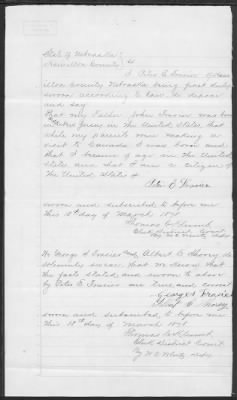 State of Nebraska
Hamilton County } ss
I Peter E. Frazier of Ham
ilton County Nebraska being first duly
sworn according to law do depose
and say
That my Father John Frazier was born
in the United States that
while my parents were making a
visit to Canada I was born and
that I became of age in the United
States and that I am a citizen of
The United States
Peter E Frazier
sworn and subscribed to before me
this 18th day of March 1891
Clerk District Court
By
We George F Frazier and Albert
solemnly swear that we know that
the facts stated and sworn to above
by Peter E. Frazier are true and correct
George F Frazier
Albert
sworn and subscribed to before me
this 18th day of March 1891
Clerk District Court
By